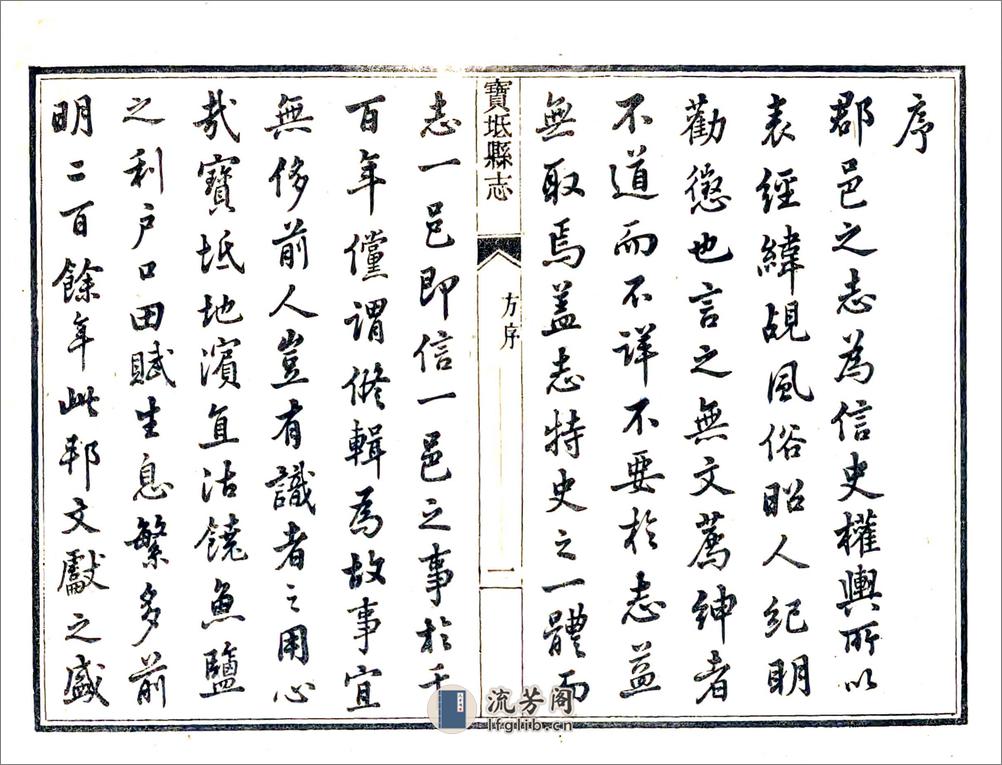 序
郡邑之志為信史權輿所以
表經緯覘風俗昭人紀明
勸懲也言之無文薦紳者
不道而不詳不要於志益
無取焉盖志特史之一體而
寶坻縣志
方序
一
志一邑即信一邑之事於千
百年儻謂脩輯為故事宜
無侈前人豈有識者之用心
哉寶坻地濱直沽饒魚鹽
之利戶口田賦生息繁多前
明二百餘年此邦文獻之盛
流芳阁
lfglib.cn